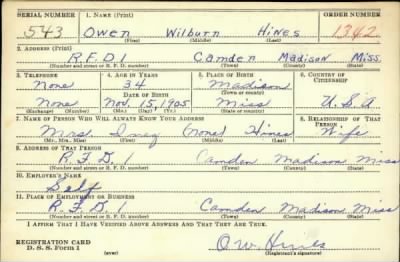 SERIAL NUMBER 1. NAME (Print) ORDER NUMBER
543 Owen Wilburn Hines 1342
(First) (Middle) (Last)
2. ADDRESS (Print)
R.F.D. 1 Camden Madison Miss
(Number and street or R. F. D. number) (Town) (County) (State)
3. TELEPHONE 4. AGE IN YEARS 5. PLACE OF BIRTH 6. COUNTRY OF CITIZENSHIP
None 34 Madison
DATE OF BIRTH (Town or county)
None Nov. 15, 1905 Miss U.S.A
(Exchange) (Number) (Mo.) (Day) (Yr.) (State or country)
7. NAME OF PERSON WHO WILL ALWAYS KNOW YOUR ADDRESS 8. RELATIONSHIP OF THAT PERSON
Mrs. Inez (none) Hines Wife
(Mr., Mrs., Miss) (First) (Middle) (Last)
9. ADDRESS OF THAT PERSON
R.F.D. 1 Camden Madison Miss
(Number and street or R. F. D. number) (Town) (County) (State)
10. EMPLOYER'S NAME
Self
11. PLACE OF EMPLOYMENT OR BUSINESS
R.F.D. 1 Camden Madison Miss
(Number and street or R. F. D. number) (Town) (County) (State)
I AFFIRM THAT I HAVE VERIFIED ABOVE ANSWERS AND THAT THEY ARE TRUE.
REGISTRATION CARD
D. S. S. Form 1 (over) O W Hines
(Registrant's signature)